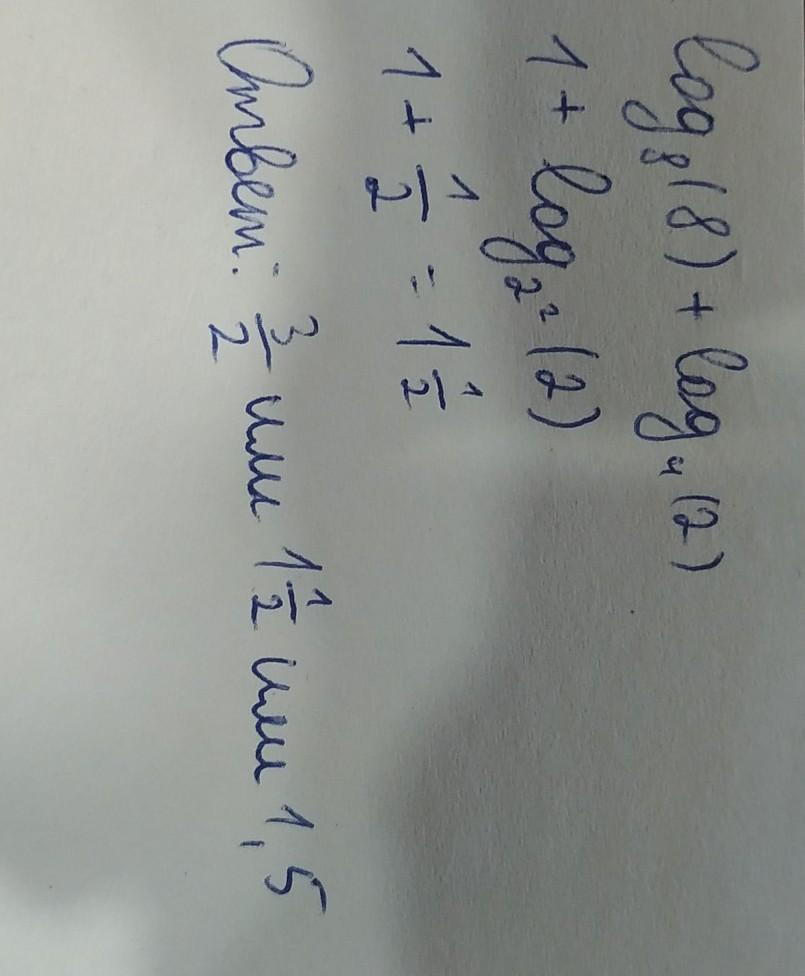 log₈(8) + log₄(2)
1 + log₂²(2)
1 + 1/2 = 1 1/2
Ответ: 3/2 или 1 1/2 или 1,5